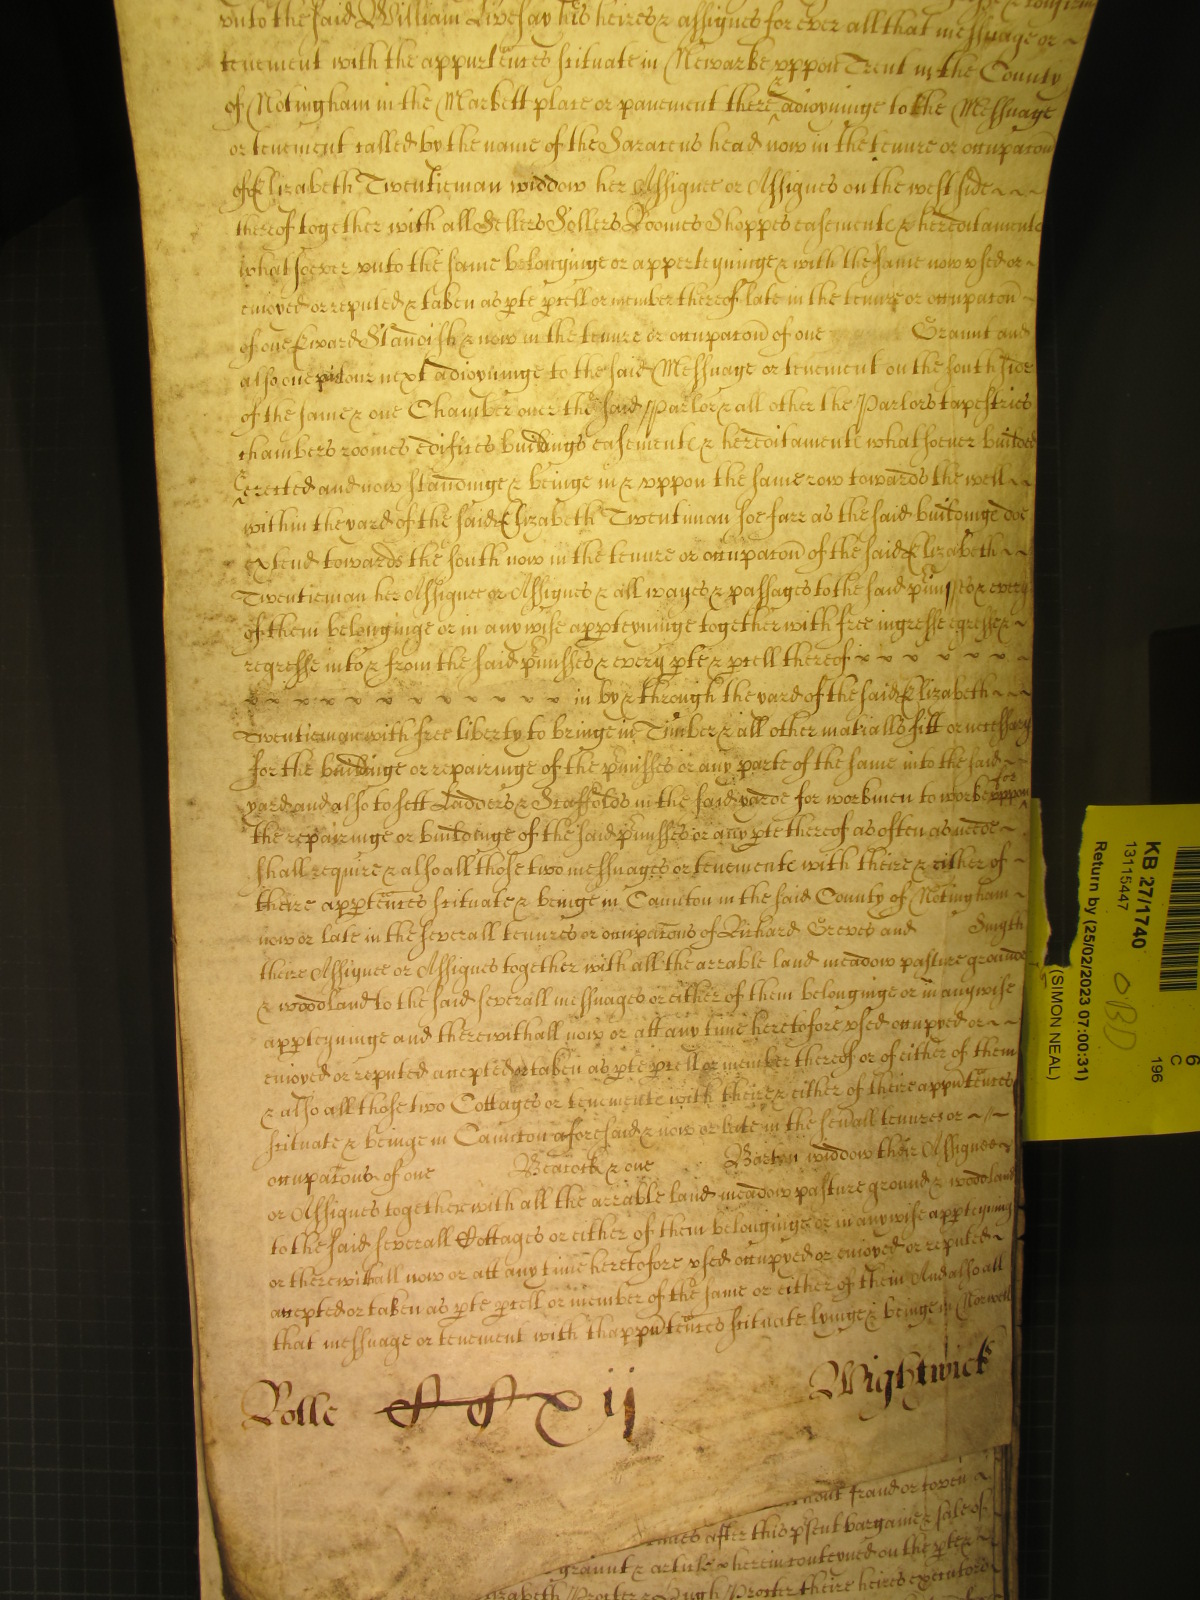 vnto the said William Livesay his heires & assignes for ever all that messuage or ~
tenement with the appurtences scituate in Newarke vppon Trent in the County
of Notingham in the Markett place or pavement there & adioyninge to the Messuage
or tenement called by the name of the Saracens head now in the tenure or occupacon
of Elizabeth Twentieman widdow her Assignee or Assignes on the west side ~ ~
thereof together with all Sellers Sollers Roomes Shoppes easemente & hereditamente
whatsoever vnto the same belonginge or apperteyninge & with the same now vsed or ~
enioyed or reputed & taken as pte pcell or member thereof late in the tenure or occupacon ~
of one Edward Standish & now in the tenure or occupacon of one Graunt and
also one parlour next adioyninge to the said Messuage or tenement on the south side
of the same & one Chamber over the said Parlor & all other the Parlors tapestries
chambers roomes edifices buildings easemente & hereditamente whatsoever builded
erected and now standinge & beinge in & vppon the same row towards the well ~
within the yard of the said Elizabeth Twentiman soe farr as the said buildinge doe
extend towards the south now in the tenure or occupacon of the said Elizabeth ~ ~
Twentieman her Assignee or Assignes & all wayes & passages to the said pmisses & every
of them belonginge or in any wise appteyninge together with free ingresse egresse & ~
regresse into & from the said pmisses & every pte & pcell thereof
in by & through the yard of the said Elizabeth ~ ~ ~
Twentieman with free liberty to bringe in Timber & all other materialls fitt or necessary
for the buildinge or repairinge of the pmisses or any parte of the same into the said ~
yard and also to sett Ladders & Scaffolds in the said yarde for workmen to worke vppon for
the repairinge or buildinge of the said pmisses or any pte thereof as often as neede ~
shall require & also all those two messuages or tenemente with theire & either of ~
theire apptences scituate & beinge in Caunton in the said County of Notingham ~
now or late in the severall tenures or occupacons of Richard Greves and Smyth
theire Assignee or Assignes together with all the arrable land meadow pasture grounde
& woodland to the said severall messuages or either of them belonginge or in anywise
appteyninge and therewithall now or att any time heretofore vsed occupyed or ~ ~
enioyed or reputed accepted or taken as pte pcell or member thereof or of either of them
& also all those two Cottages or tenemente with theire & either of theire appurtences
scituate & beinge in Caunton aforesaid & now or late in the sevall tenures or ~ ~
occupacons of one Bearock & one Barton widdow their Assignee ~
or Assignes together with all the arrable land meadow pasture ground & woodland
to the said severall Cottages or either of them belonginge or in anywise appteyning
or therewithall now or att any time heretofore vsed occupyed or enioyed or reputed ~
accepted or taken as pte pcell or member of the same or either of them And also all
that messuage or tenement with thappurtences scituate lyinge & beinge in Norwell
Rolle CCxij Wightwick
fraud or coven
after this psent bargaine & sale of
graunt & article herein conteyned on the pte &
Elizabeth Procter & Hugh Procter theire heires executors
KB 27/1740
13115447
Return by (25/02/2023 07:00:31)
(SIMON NEAL)
OBD
6
C
196